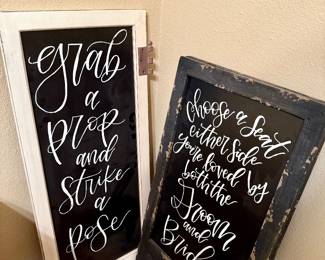 grab
a
prop
and
strike
a
pose
choose a Seat
either side
you're loved by
both the
Groom
and
Bride